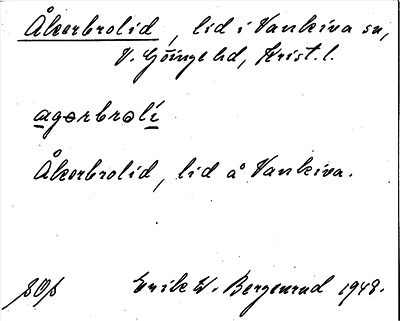 Åkerbrolid, lid i Vankiva sn,
V. Göinge hd, Krist. l.
agərbrəlí
Åkerbrolid, lid å Vankiva.
Erik W. Bergenrud 1948.